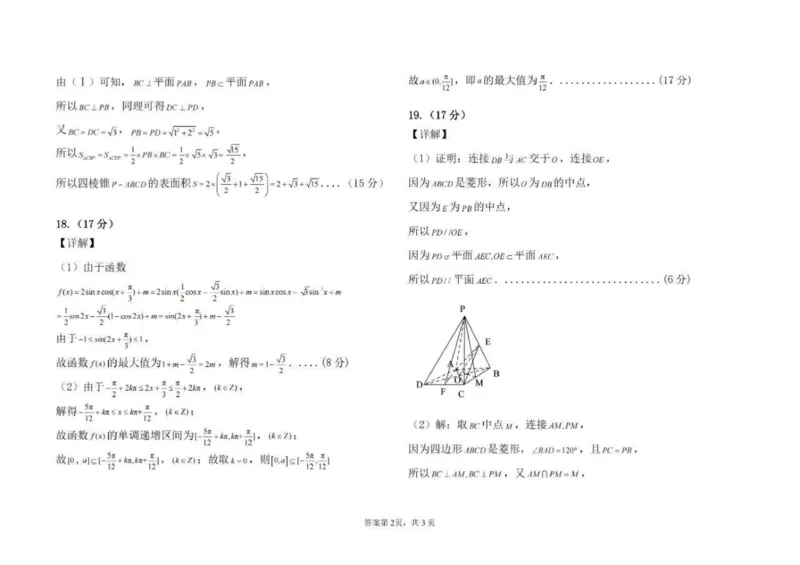 由(Ⅰ)可知，BC⊥平面PAB，PB⊂平面PAB，
所以BC⊥PB，同理可得DC⊥PD，
又BC=DC=3，PB=PD=1²+2²=5，
所以S△CBP=S△CDP=1/2×PB×BC=1/2×5×3=15/2，
所以四棱锥P-ABCD的表面积S=2×(3/2+1+15/2)=2+3+15....（15分）
18.（17分）
【详解】
（1）由于函数
f(x)=2sinxcos(x+π/3)+m=2sinx(1/2cosx-3/2sinx)+m=sinxcosx-3sin²x+m
=1/2sin2x-3/2(1-cos2x)+m=sin(2x+π/3)+m-3/2
由于-1≤sin(2x+π/3)≤1，
故函数f(x)的最大值为1+m-3/2=2m，解得m=1-3/2.....（8分）
（2）由于-π/2+2kπ≤2x+π/3≤π/2+2kπ，(k∈Z)，
解得-5π/12+kπ≤x≤kπ+π/12，(k∈Z)；
故函数f(x)的单调递增区间为[-5π/12+kπ,kπ+π/12]，(k∈Z)；
故[0,a]⊆[-5π/12+kπ,kπ+π/12]，(k∈Z)；故取k=0，则[0,a]⊆[-5π/12,π/12]
故a∈(0,π/12]，即a的最大值为π/12.................（17分）
19.（17分）
【详解】
（1）证明：连接DB与AC交于O，连接OE，
因为ABCD是菱形，所以O为DB的中点，
又因为E为PB的中点，
所以PD//OE，
因为PD⊄平面AEC,OE⊂平面AEC，
所以PD//平面AEC...............................（6分）
P
E
A
B
D
O
M
F
C
（2）解：取BC中点M，连接AM,PM，
因为四边形ABCD是菱形，∠BAD=120°，且PC=PB，
所以BC⊥AM,BC⊥PM，又AM∩PM=M，
答案第2页，共3页